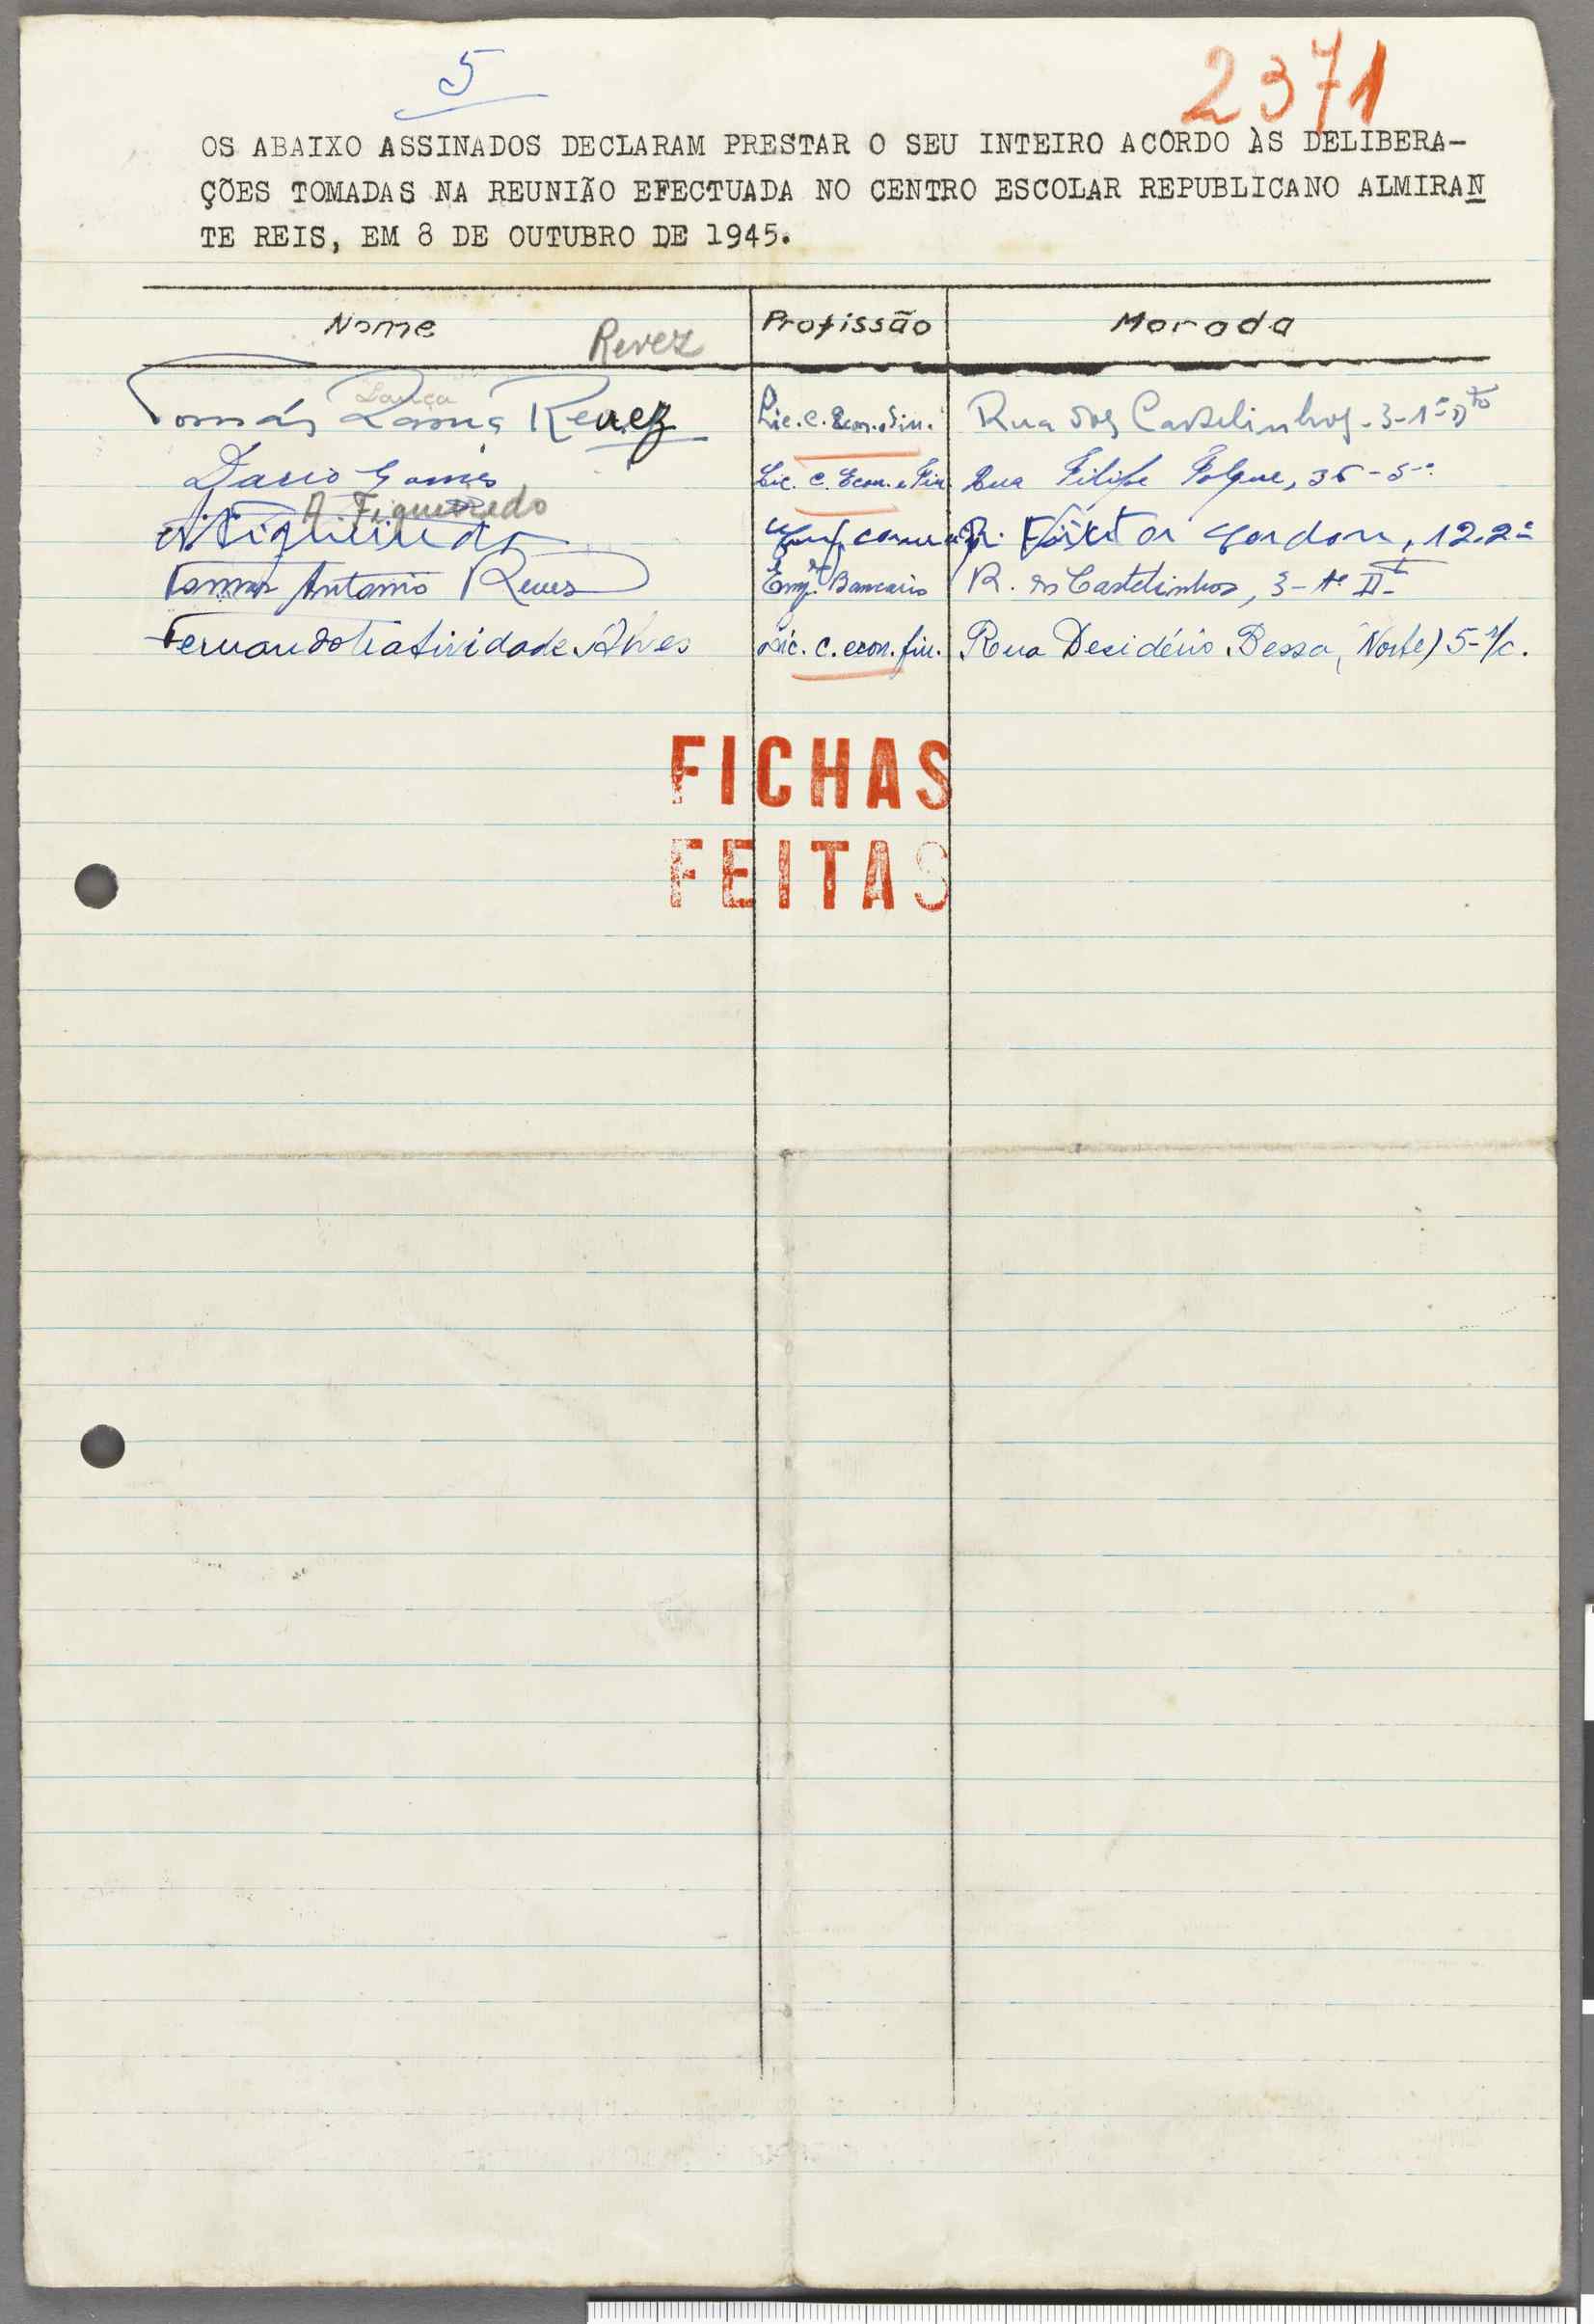 5
2371
OS ABAIXO ASSINADOS DECLARAM PRESTAR O SEU INTEIRO ACORDO ÀS DELIBERA-
ÇÕES TOMADAS NA REUNIÃO EFECTUADA NO CENTRO ESCOLAR REPUBLICANO ALMIRAN
TE REIS, EM 8 DE OUTUBRO DE 1945.
Nome Profissão Morada
Revez
Lança
Tomás Lança Revez Lic. C. Econ. e Fin. Rua dos Castelinhos - 3-1º Dto
Dario Gomes Lic. C. Econ. e Fin. Rua Filipe Folque, 36-5º
A. Figueiredo
A. Figueiredo R. Victor Gordon, 12.2º
Tomás Antonio Revez Empº Bancario R. dos Castelinhos, 3-1º Dt
Fernando Natividade Alves Lic. C. econ. fin. Rua Desidério Bessa, (Norte) 5-r/c.
FICHAS
FEITAS